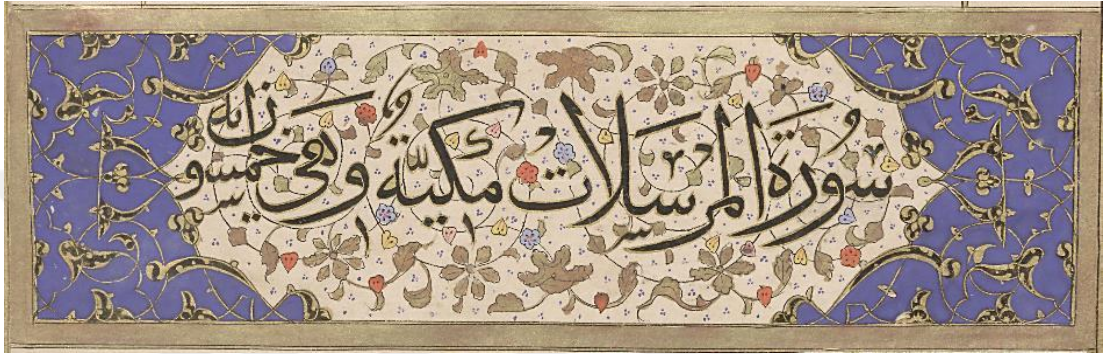 سورة المرسلات مكية وهي خمسون اية